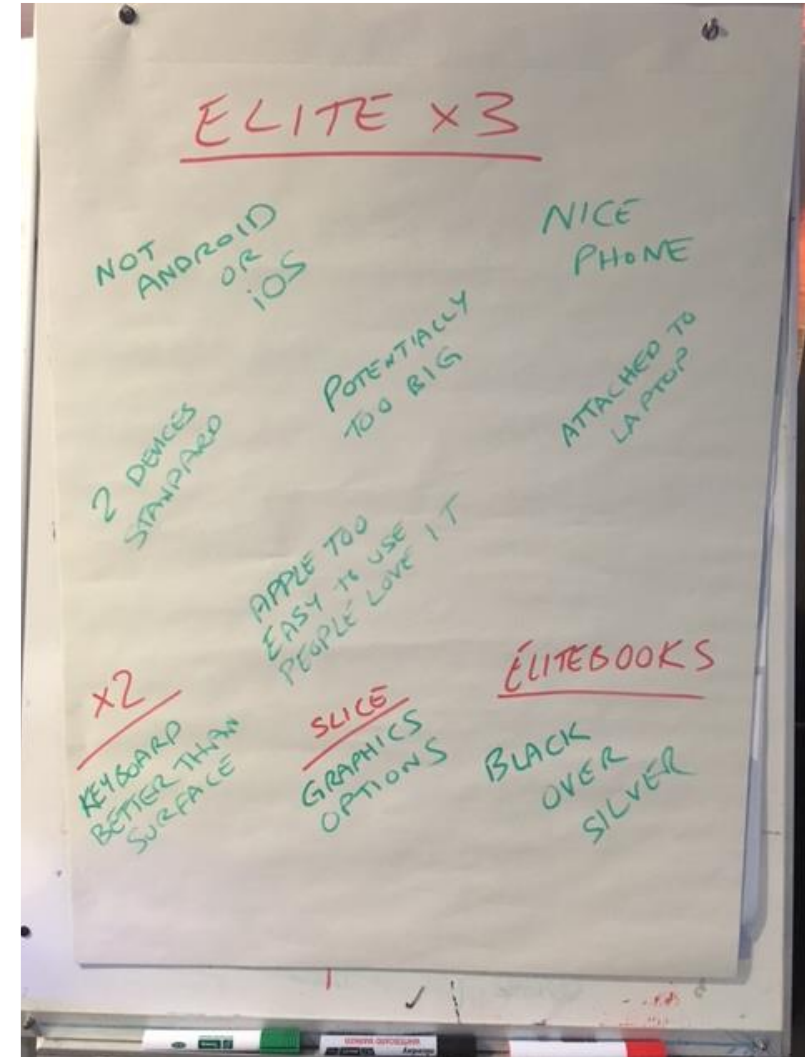 ELITE x3
NOT
ANDROID
OR
iOS
NICE
PHONE
POTENTIALLY
TOO BIG
ATTACHED TO
LAPTOP
2 DEVICES
STANDARD
APPLE TOO
EASY TO USE
PEOPLE LOVE IT
x2
KEYBOARD
BETTER THAN
SURFACE
SLICE
GRAPHICS
OPTIONS
ELITEBOOKS
BLACK
OVER
SILVER
WHITEBOARD MARKER